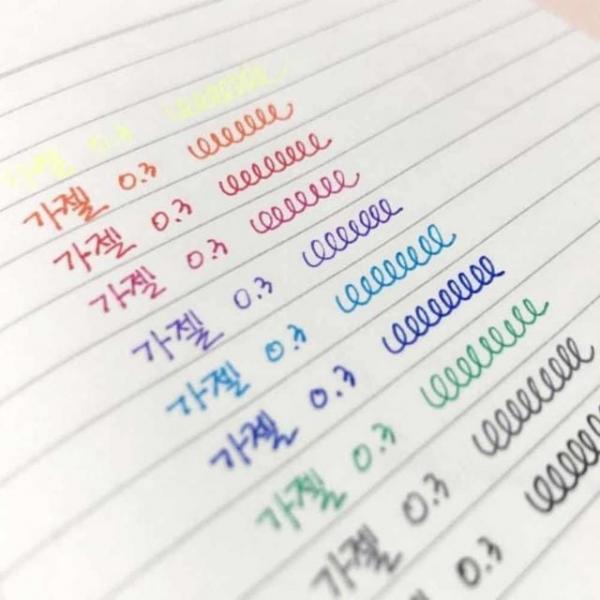 가젤 0.3
가젤 0.3
가젤 0.3
가젤 0.3
가젤 0.3
가젤 0.3
가젤 0.3
가젤 0.3
가젤 0.3
0.3